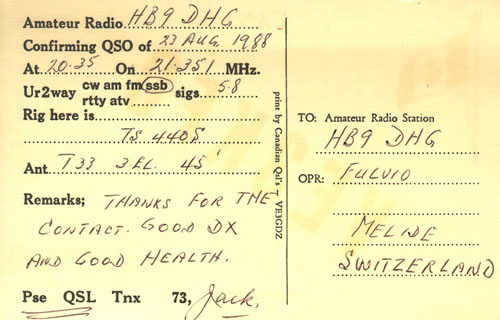 Amateur Radio HB9 DHG
Confirming QSO of 23 AUG. 1988
At 20.35 On 21.351 MHz.
Ur2way cw am fm ssb sigs 58
rtty atv
Rig here is
TS. 440S
Ant T33 3 EL. 45'
Remarks; THANKS FOR THE
CONTACT. GOOD DX
AND GOOD HEALTH.
Pse QSL Tnx 73, Jack.
print by Canadian Qsl's VE3GDZ
TO: Amateur Radio Station
HB9 DHG
OPR: FULVIO
MELIDE
SWITZERLAND